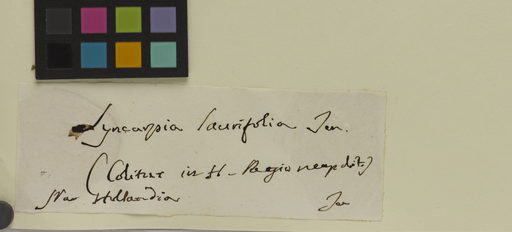 Syncarpia laurifolia Ten.
(Colitur in H. Regio neapolit.)
Nov Hollandia Ten